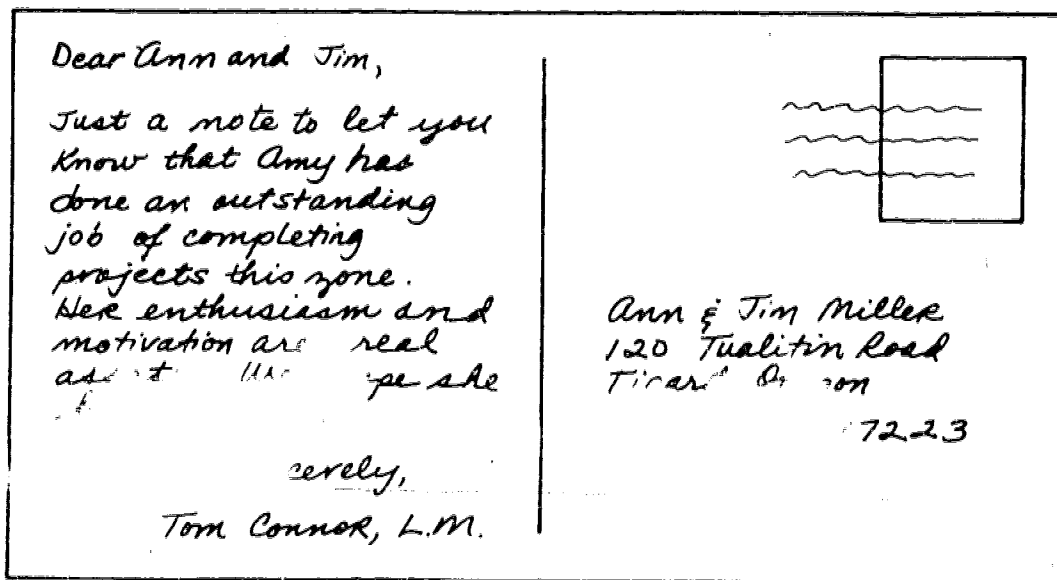 Dear Ann and Jim,
Just a note to let you
Know that Amy has
done an outstanding
job of completing
projects this zone.
Her enthusiasm and
motivation are real
she
Tom Connor, L.M.
Ann & Jim Miller
120 Tualitin Road